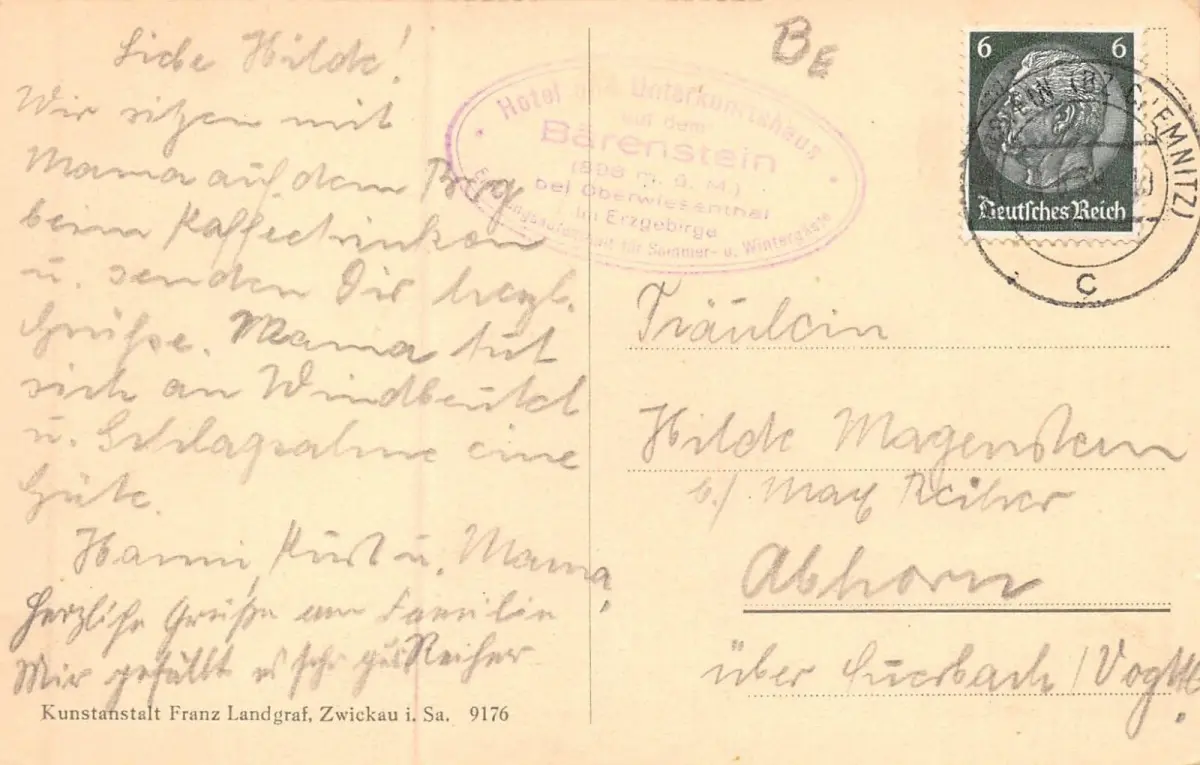 Liebe Hilde!
Wir sitzen mit
Mama auf dem Brg
beim Kaffeetrinken
u. senden Dir herzl.
Grüße. Mama tut
sich an Windbeutel
u. Schlagsahne eine
Güte.
Hanni, Kurt u. Mama,
Herzliche Grüße an Familie
Mir gefällt es sehr gut Reiher
Kunstanstalt Franz Landgraf, Zwickau i. Sa. 9176
BE
Hotel und Unterkunftshaus
auf dem
Bärenstein
(898 m. ü. M.)
bei Oberwiesenthal
im Erzgebirge
für Sommer- u. Wintergäste
6 6
Deutsches Reich
(BZ CHEMNITZ)
C
Fräulein
Hilde Magenstein
b./ Max Reiher
Abhorn
über Auerbach / Vogtl.